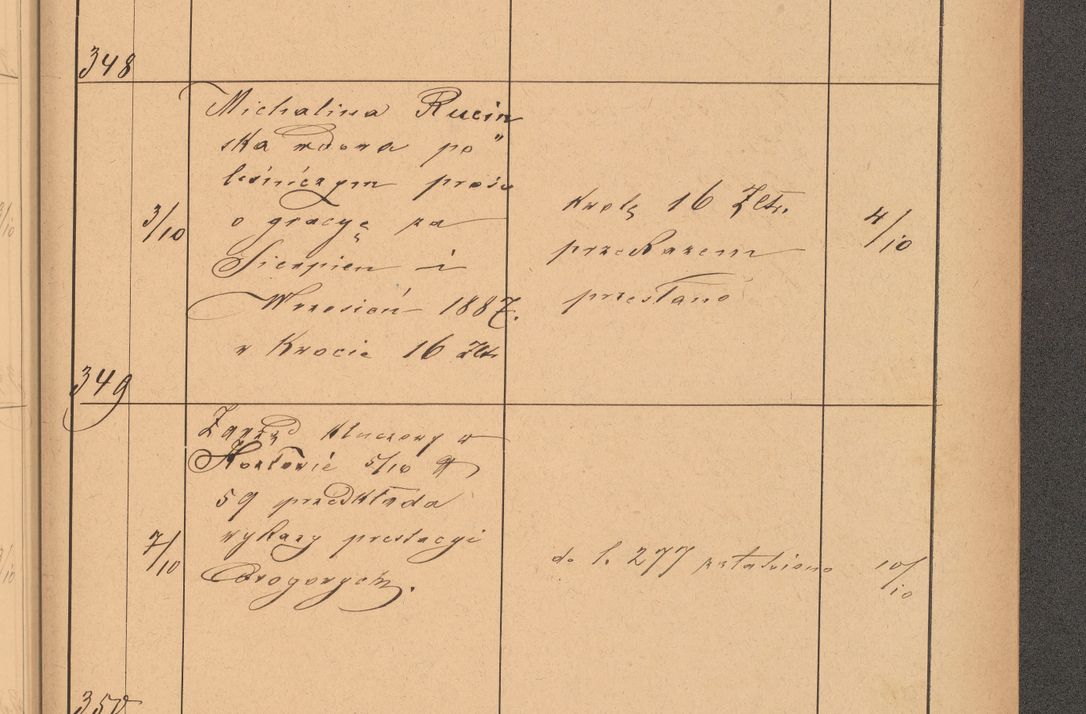 348
Michalina Rucin
ska wdowa po "
leśniczym prosi
3/10
o gracyę za
Sierpien i
Wrzesień 1887.
w kwocie 16 Złr
kwotę 16 Złr.
przekazem
przesłano
4/10
349
Zarząd kluczowy w
5/10
59 przedkłada
wykazy prestacyi
drogowych.
7/10
do l. 277 załatwiono
10/10
350